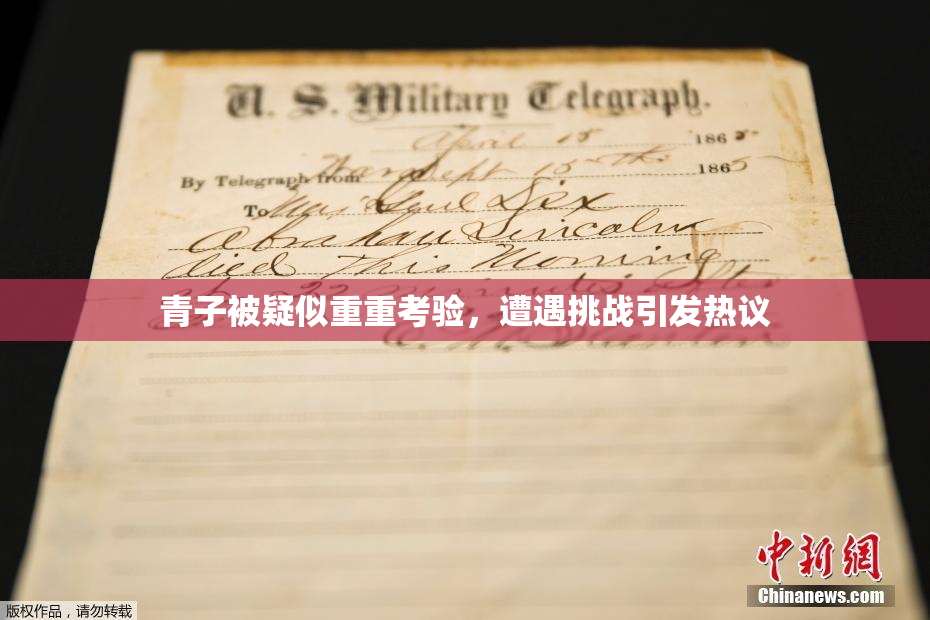 U. S. Military Telegraph.
April 15 1865
By Telegraph from War Dept 15th 1865
To Maj Genl Dix
Abraham Lincoln
died This Morning
at 22 minutes after
青子被疑似重重考验，遭遇挑战引发热议
E. M. Stanton
中新网
Chinanews.com
版权作品，请勿转载